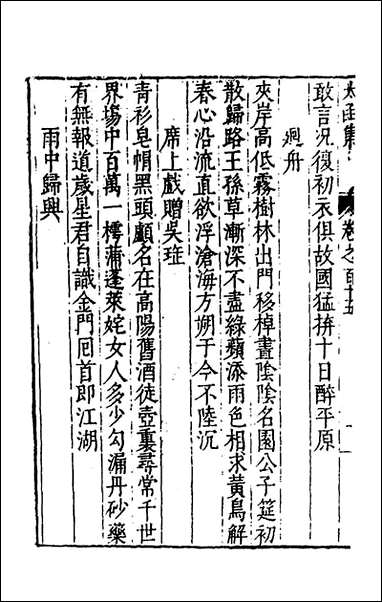 太函集
卷之百十五
敢言況復初衣俱故國猛拚十日醉平原
迥舟
夾岸高低霧樹林出門移棹晝陰陰名園公子筵初
散歸路王孫草漸深不盡綠蘋添雨色相求黃鳥解
春心沿流直欲浮滄海方朔于今不陸沉
席上戲贈吳琟
青衫皂帽黑頭顱名在高陽舊酒徒壺裏尋常千世
界場中百萬一樗蒲蓬萊姹女人多少勾漏丹砂藥
有無報道歲星君自識金門回首即江湖
雨中歸興